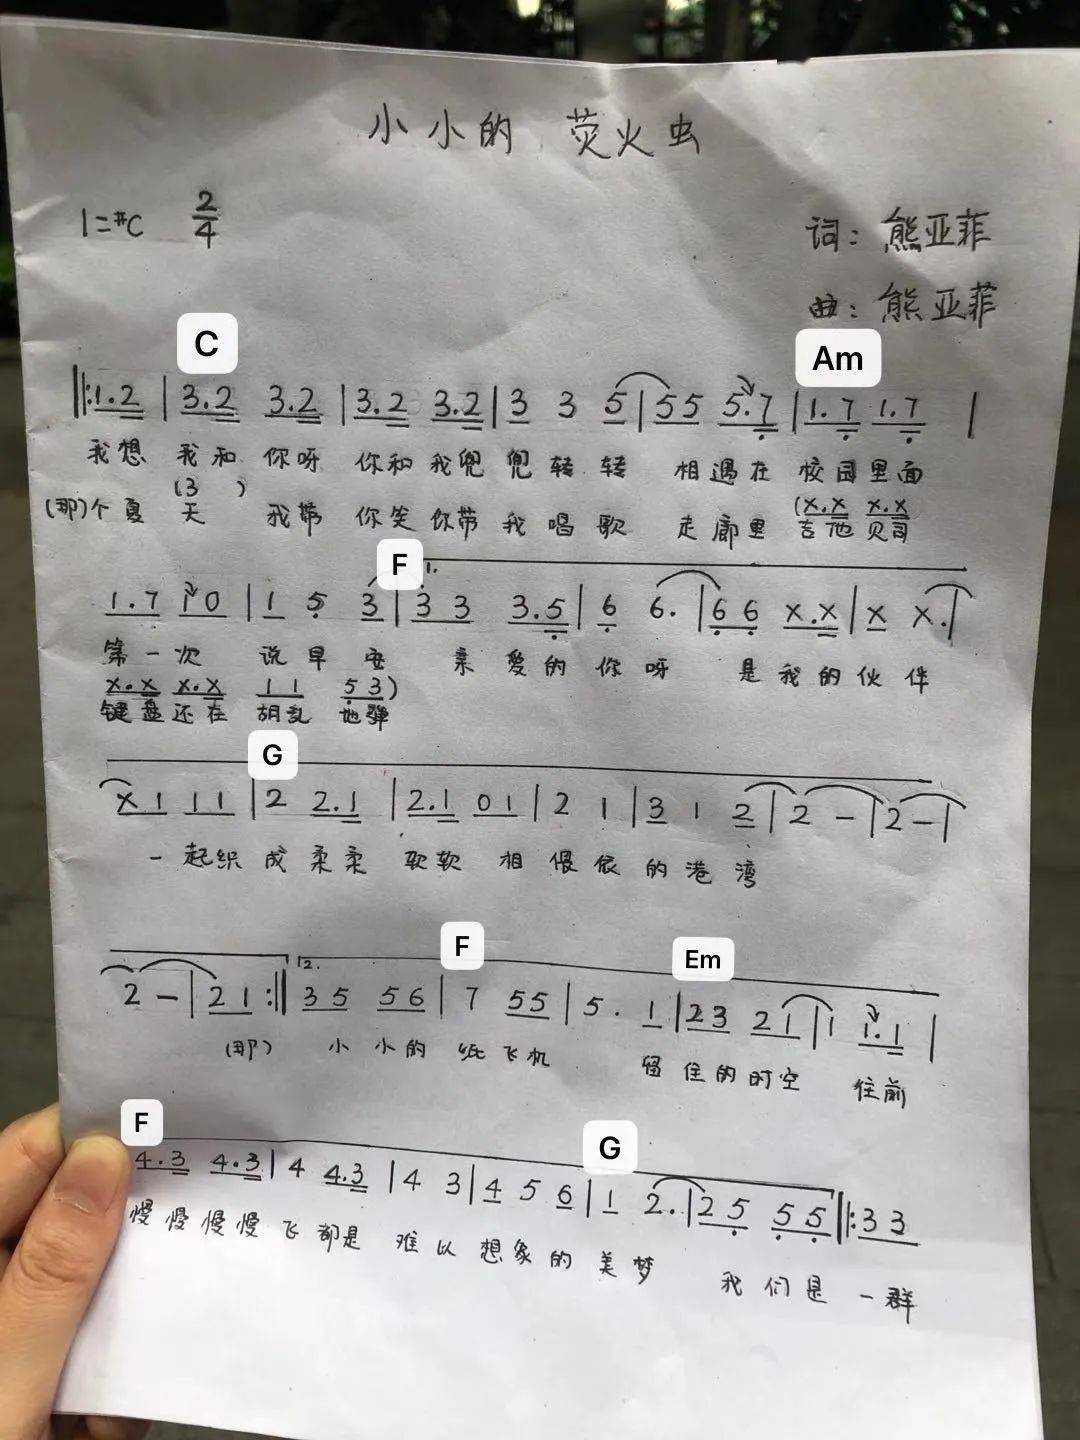 小小的 荧火虫
1=#C 2/4
词：熊亚菲
曲：熊亚菲
C Am
‖:1.2 | 3.2 3.2 | 3.2 3.2 | 3 3 5 | 55 5.7 | 1.7 1.7 |
我想 我和 你呀 你和 我兜 兜 转 转 相遇在 校园里面
(3 ) (x.x x.x
(那)个夏 天 我带 你笑 你带 我 唱 歌 走廊里 吉他 贝司
F
1.
1.7 10 | 1 5 3 | 33 3.5 | 6 6. | 66 x.x | x x. |
第一次 说早安 亲爱的你呀 是我的伙伴
x.x x.x 11 53)
键盘还在 胡乱 地弹
G
x1 11 | 2 2.1 | 2.1 01 | 2 1 | 3 1 2 | 2 - | 2 - |
一起织成柔柔 软软 相偎依的港湾
F Em
2 - | 21 :‖ 2. 35 56 | 7 55 | 5. 1 | 23 21 | 1 1.1 |
(那) 小小的 纸飞机 留住的时空 往前
F G
4.3 4.3 | 4 4.3 | 4 3 | 4 5 6 | 1 2. | 25 55 ‖: 33
慢慢慢慢飞 都是 难以想象的美梦 我们是一群